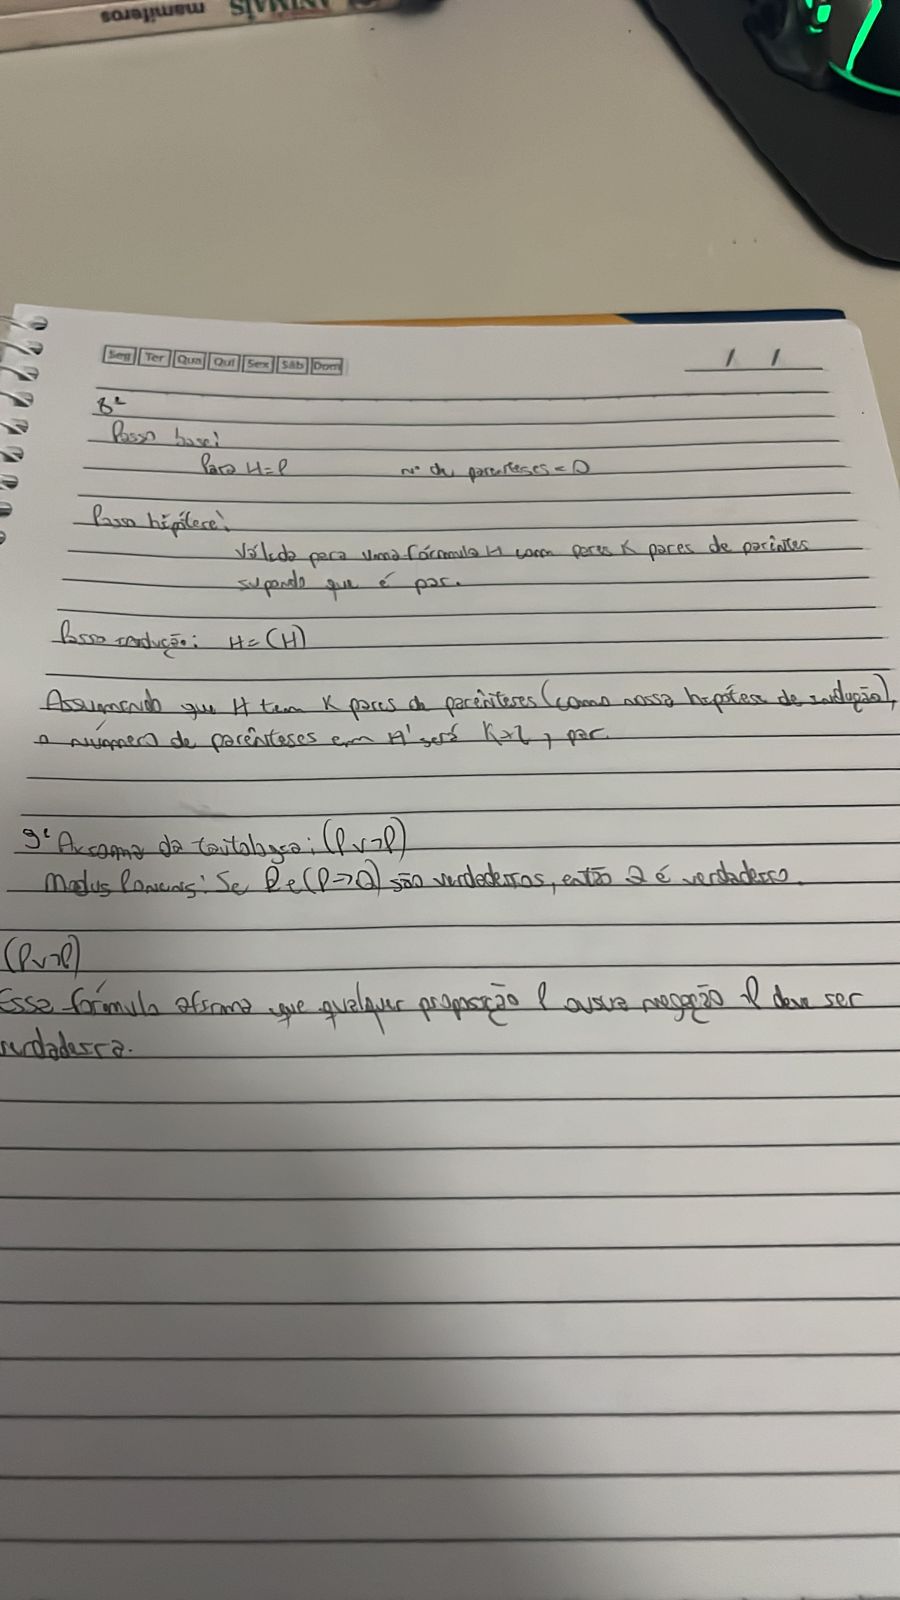 mamíferos ANIMAIS
Seg Ter Qua Qui Sex Sáb Dom / /
8ª
Passo base:
Para H=P nº de parenteses = 0
Passo hipótese:
Válida para uma fórmula H com pares K pares de parêntes
supondo que é par.
Passo indução: H=(H)
Assumindo que H tem K pares de parênteses (como nossa hipótese de indução),
o número de parênteses em H' será K+2, par.
9ª Axioma da tautologia: (P v ¬P)
Modus Ponens: Se P e (P→Q) são verdadeiros, então Q é verdadeiro.
(P v ¬P)
Essa fórmula afirma que qualquer proposição P ou sua negação ¬P deve ser
verdadeira.